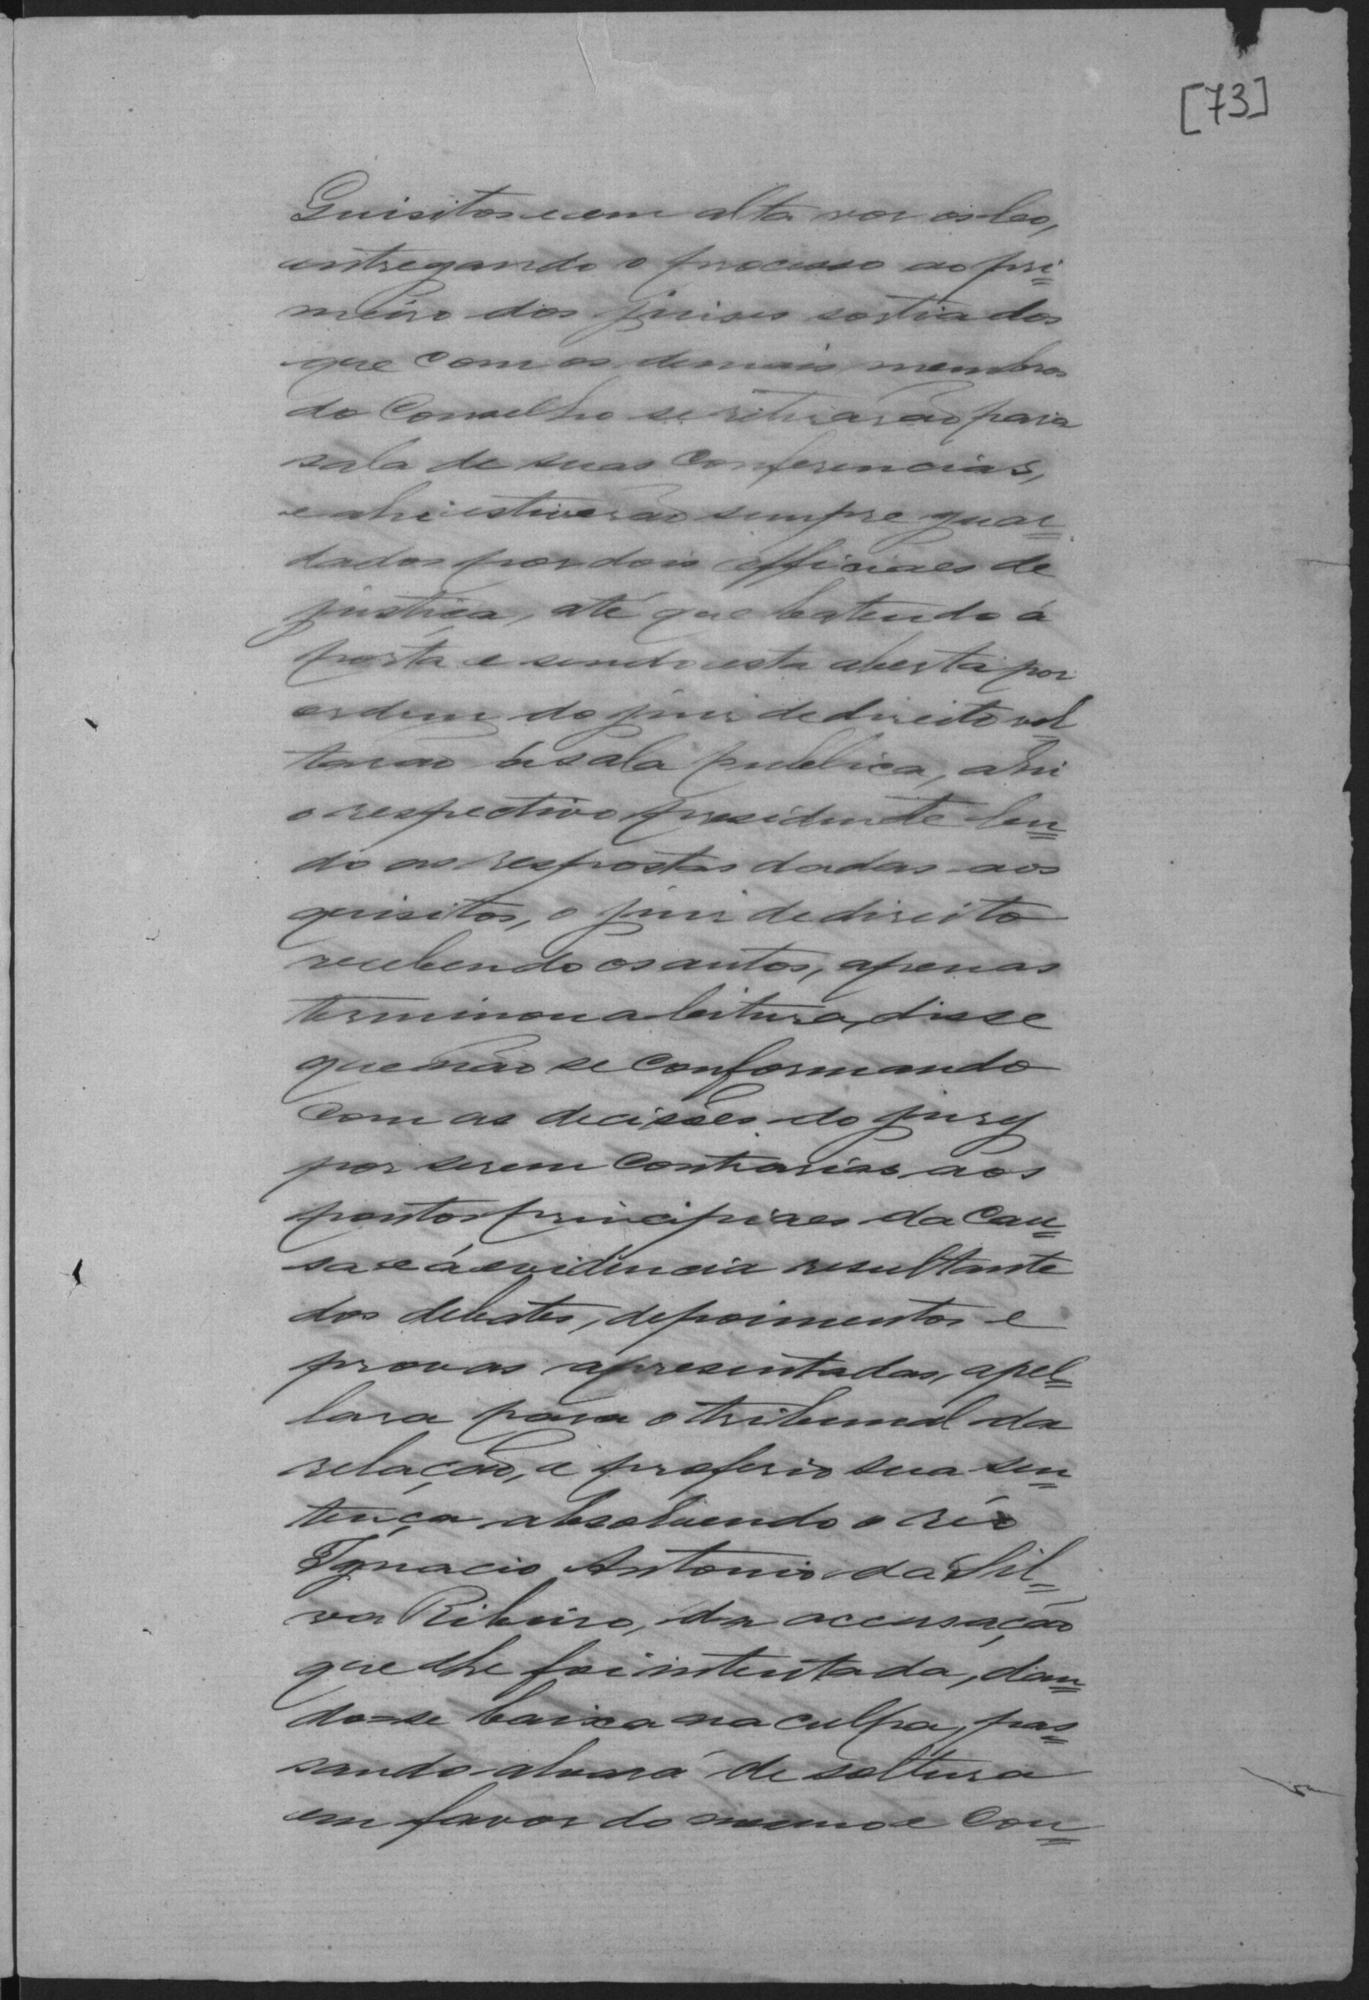 [73]
Quisitos e em alta voz os leo,
entregando o processo ao pri=
meiro dos juises sortiados
que com os demais membros
do Conselho se retirarão para
sala de suas Conferencias,
e ahi estiverão sempre guar=
dados por dois officiaes de
justiça, até que batendo á
porta e sendo esta aberta por
ordem do juiz de direito vol=
tarão á sala publica, ahi
o respectivo presidente len=
do as respostas dadas aos
quisitos, o juiz de direito
recebendo os autos, apenas
terminou a leitura, disse
que não se conformando
com as decisões do jury
por serem contrarias aos
pontos principaes da Cau=
sa e á evidencia resultante
dos debates, depoimentos e
provas apresentadas, apel=
lara para o tribunal da
relação, e proferio sua sen=
tença absolvendo o réo
Ignacio Antonio da Sil=
va Ribeiro, da accusação
que lhe foi intentada, dan=
do-se baixa na culpa, pas=
sando alvará de soltura
em favor do mesmo e Con=